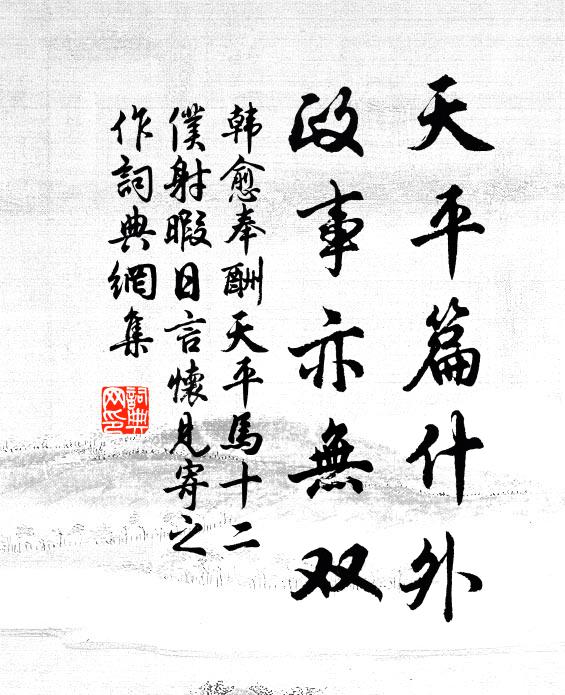 天平篇什外
政事亦無双
韩愈奉酬天平馬十二
僕射暇日言懷見寄之
作詞典網集
詞典网印